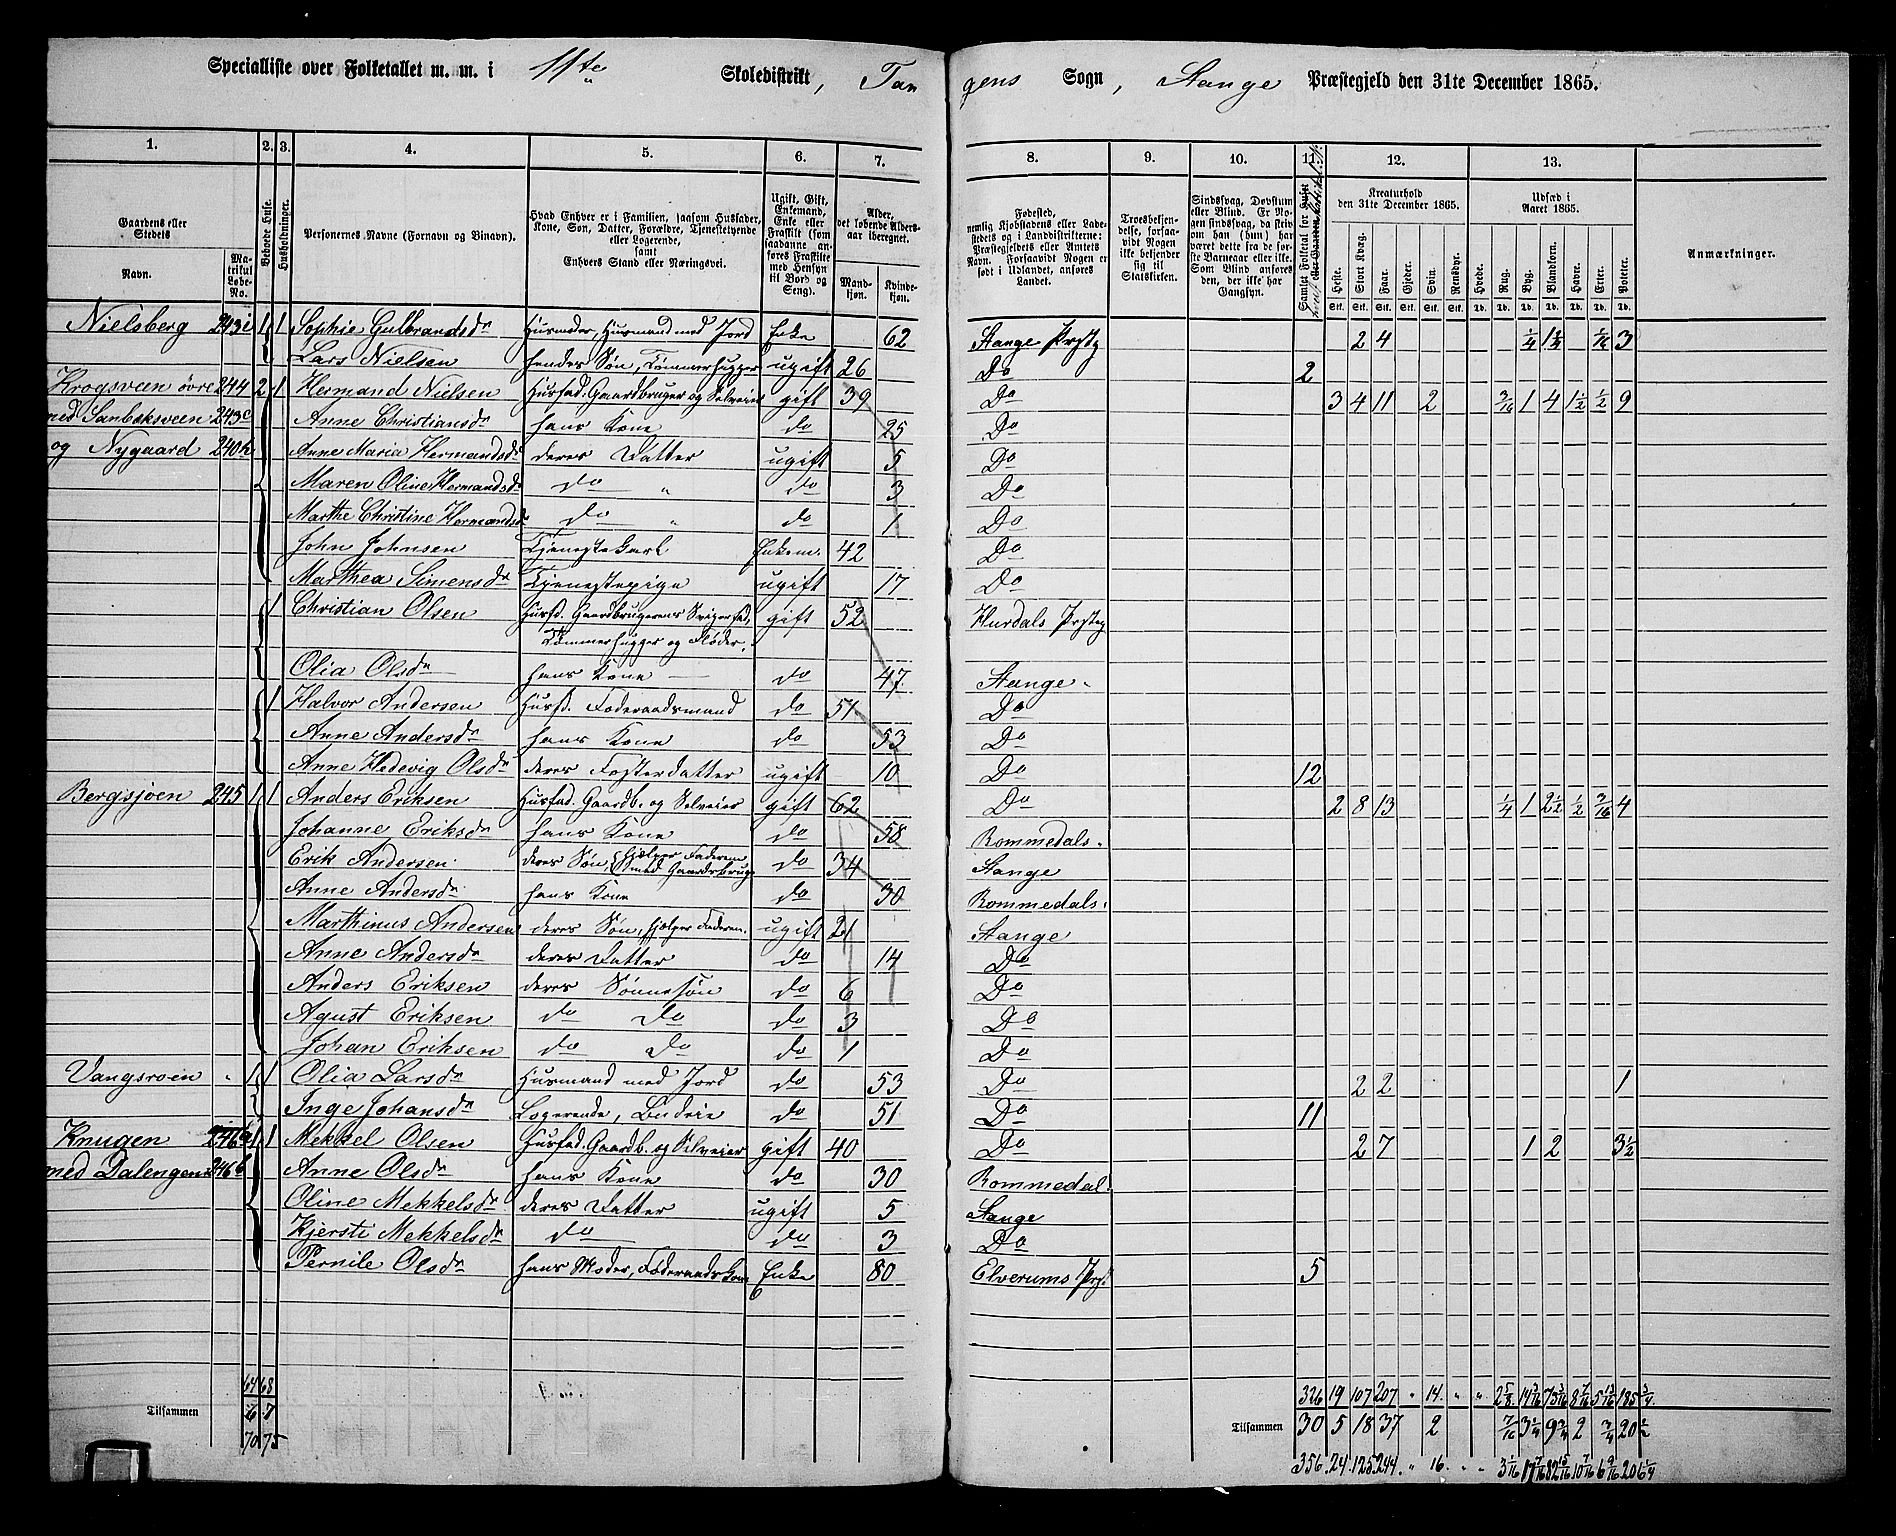 Specialliste over Folketallet m. m. i 11te Skoledistrikt, Tangens Sogn, Stange Præstegjeld den 31te December 1865.
1. 2. 3. 4. 5. 6. 7. 8. 9. 10. 11. 12. 13.
Gaardens eller Stedets
Navn. Matrikul Løbe-No.
Beboede Huse.
Husholdninger.
Personernes Navne (Fornavn og Binavn).
Hvad Enhver er i Familien, saasom Husfader, Kone, Søn, Datter, Forældre, Tjenestetyende eller Logerende, samt Enhvers Stand eller Næringsvei.
Ugift, Gift, Enkemand, Enke eller Fraskilt (som saadanne anføres Fraskilte med Hensyn til Bord og Seng).
Alder, det løbende Aldersaar iberegnet.
Mandkjøn. Kvindekjøn.
Fødested, nemlig Kjøbstadens eller Ladestedets og i Landdistrikterne: Præstegjeldets eller Amtets Navn. Forsaavidt Nogen er født i Udlandet, anføres Landet.
Troesbekjendelse, forsaavidt Nogen ikke bekjender sig til Statskirken.
Sindssvag, Døvstum eller Blind. Er Nogen sindssvag, da skrives om han (hun) har været dette fra de første Barneaar eller ikke. Som Blind anføres den, der ikke har Gangsyn.
Samlet Folketal for
Kreaturhold den 31te December 1865.
Heste. Stort Kvæg. Faar. Gjeder. Svin. Rensdyr.
Udsæd i Aaret 1865.
Hvede. Rug. Byg. Blandkorn. Havre. Erter. Poteter.
Anmærkninger.
Nielsberg 243i 1 1 Sophie Gulbrandsdr Husmoder, Husmand med Jord Enke 62 Stange Prstg 2 4 1/4 1 1/2 1/16 3
Lars Nielsen hendes Søn, Tømmerhugger ugift 26 Do 2
Krogsveen øvre 244 2 1 Hermand Nielsen Husfad. Gaardbruger og Selveier gift 39 Do 3 4 11 2 3/16 1 4 1 1/2 1/2 9
med Sanbeksveen 243c Anne Christiansdr hans Kone do 25 Do
og Nygaard 240h Anne Maria Hermandsdr deres Datter ugift 5 Do
Maren Oline Hermandsdr do " do 3 Do
Marthe Christine Hermandsdr do " do 1 Do
John Johnsen Tjenestekarl Enkem. 42 Do
Marthea Simensdr Tjenestepige ugift 17 Do
1 Christian Olsen Husfd. Gaardbrugerens Svigerfad, gift 52 Hurdals Prstg
Tømmerhugger og Fløder.
Olia Olsdr hans Kone do 47. Stange.
1 Halvor Andersen Husfd. Føderaadsmand do 51 Do
Anne Andersdr hans Kone do 53 Do
Anne Hedevig Olsdr deres Fosterdatter ugift 10 Do 12
Bergsjøen 245 1 1 Anders Eriksen Husfad. Gaardb. og Selveier gift 62 Do 2 8 13 1/4 1 2 1/2 1/2 3/16 4
Johanne Eriksdr hans Kone do 58 Rommedals.
Erik Andersen deres Søn, hjelper Faderen med Gaardsbrug. do 34 Stange
Anne Andersdr hans Kone do 30 Rommedals.
Marthinus Andersen deres Søn, hjelper Faderen. ugift 21 Stange
Anne Andersdr deres Datter do 14 Do
Anders Eriksen deres Sønnesøn do 6 Do
Agust Eriksen do do do 3 Do
Johan Eriksen do do do 1 Do
Vangsroen " 1 1 Olia Larsdr Husmand med Jord do 53 Do 2 2 1
Inge Johansdr Logerende, Budeie do 51 Do 11
Knugen 246a 1 1 Mekkel Olsen Husfad. Gaardb. og Selveier gift 40 Do 2 7 1 2 3 1/2
med Dalengen 246b Anne Olsdr hans Kone do 30 Rommedal.
Oline Mekkelsdr deres Datter ugift 5 Stange
Kjersti Mekkelsdr do do 3 Do
Pernile Olsdr hans Moder, Føderaadskone Enke 80 Elverums Prst. 5
6
64 68 326 19 107 207 " 14 " " 2 5/8 14 3/16 73 3/16 8 7/16 5 13/16 185 3/4
Tilsammen 6 7 Tilsammen 30 5 18 37 2 7/16 3 1/4 9 3/4 2 3/4 20 1/2
70 75 356 24 125 244 " 16 " " 3 1/16 17 7/16 82 15/16 10 7/16 6 9/16 206 1/4